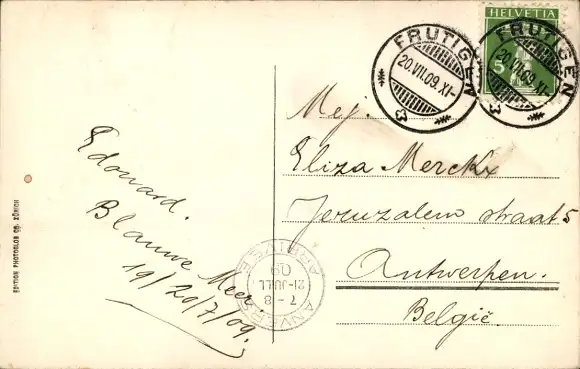 HELVETIA
5
FRUTIGEN
20.VII.09.XI-
FRUTIGEN
20.VII.09.XI-
Mej.
Eliza Merckx
Jeruzalem straat 5
Antwerpen.
België.
Edouard.
Blauwe Meer.
19/20/7/09.
ANVERS
7-8
21-JUIL
09
ARRIVÉE
EDITION PHOTOGLOB CO. ZÜRICH